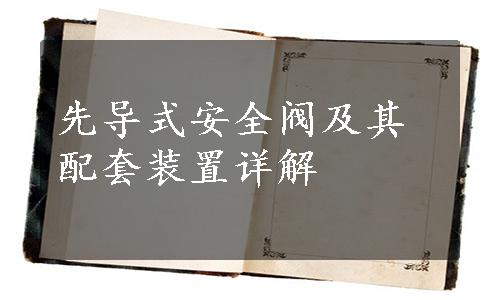 先导式安全阀及其
配套装置详解